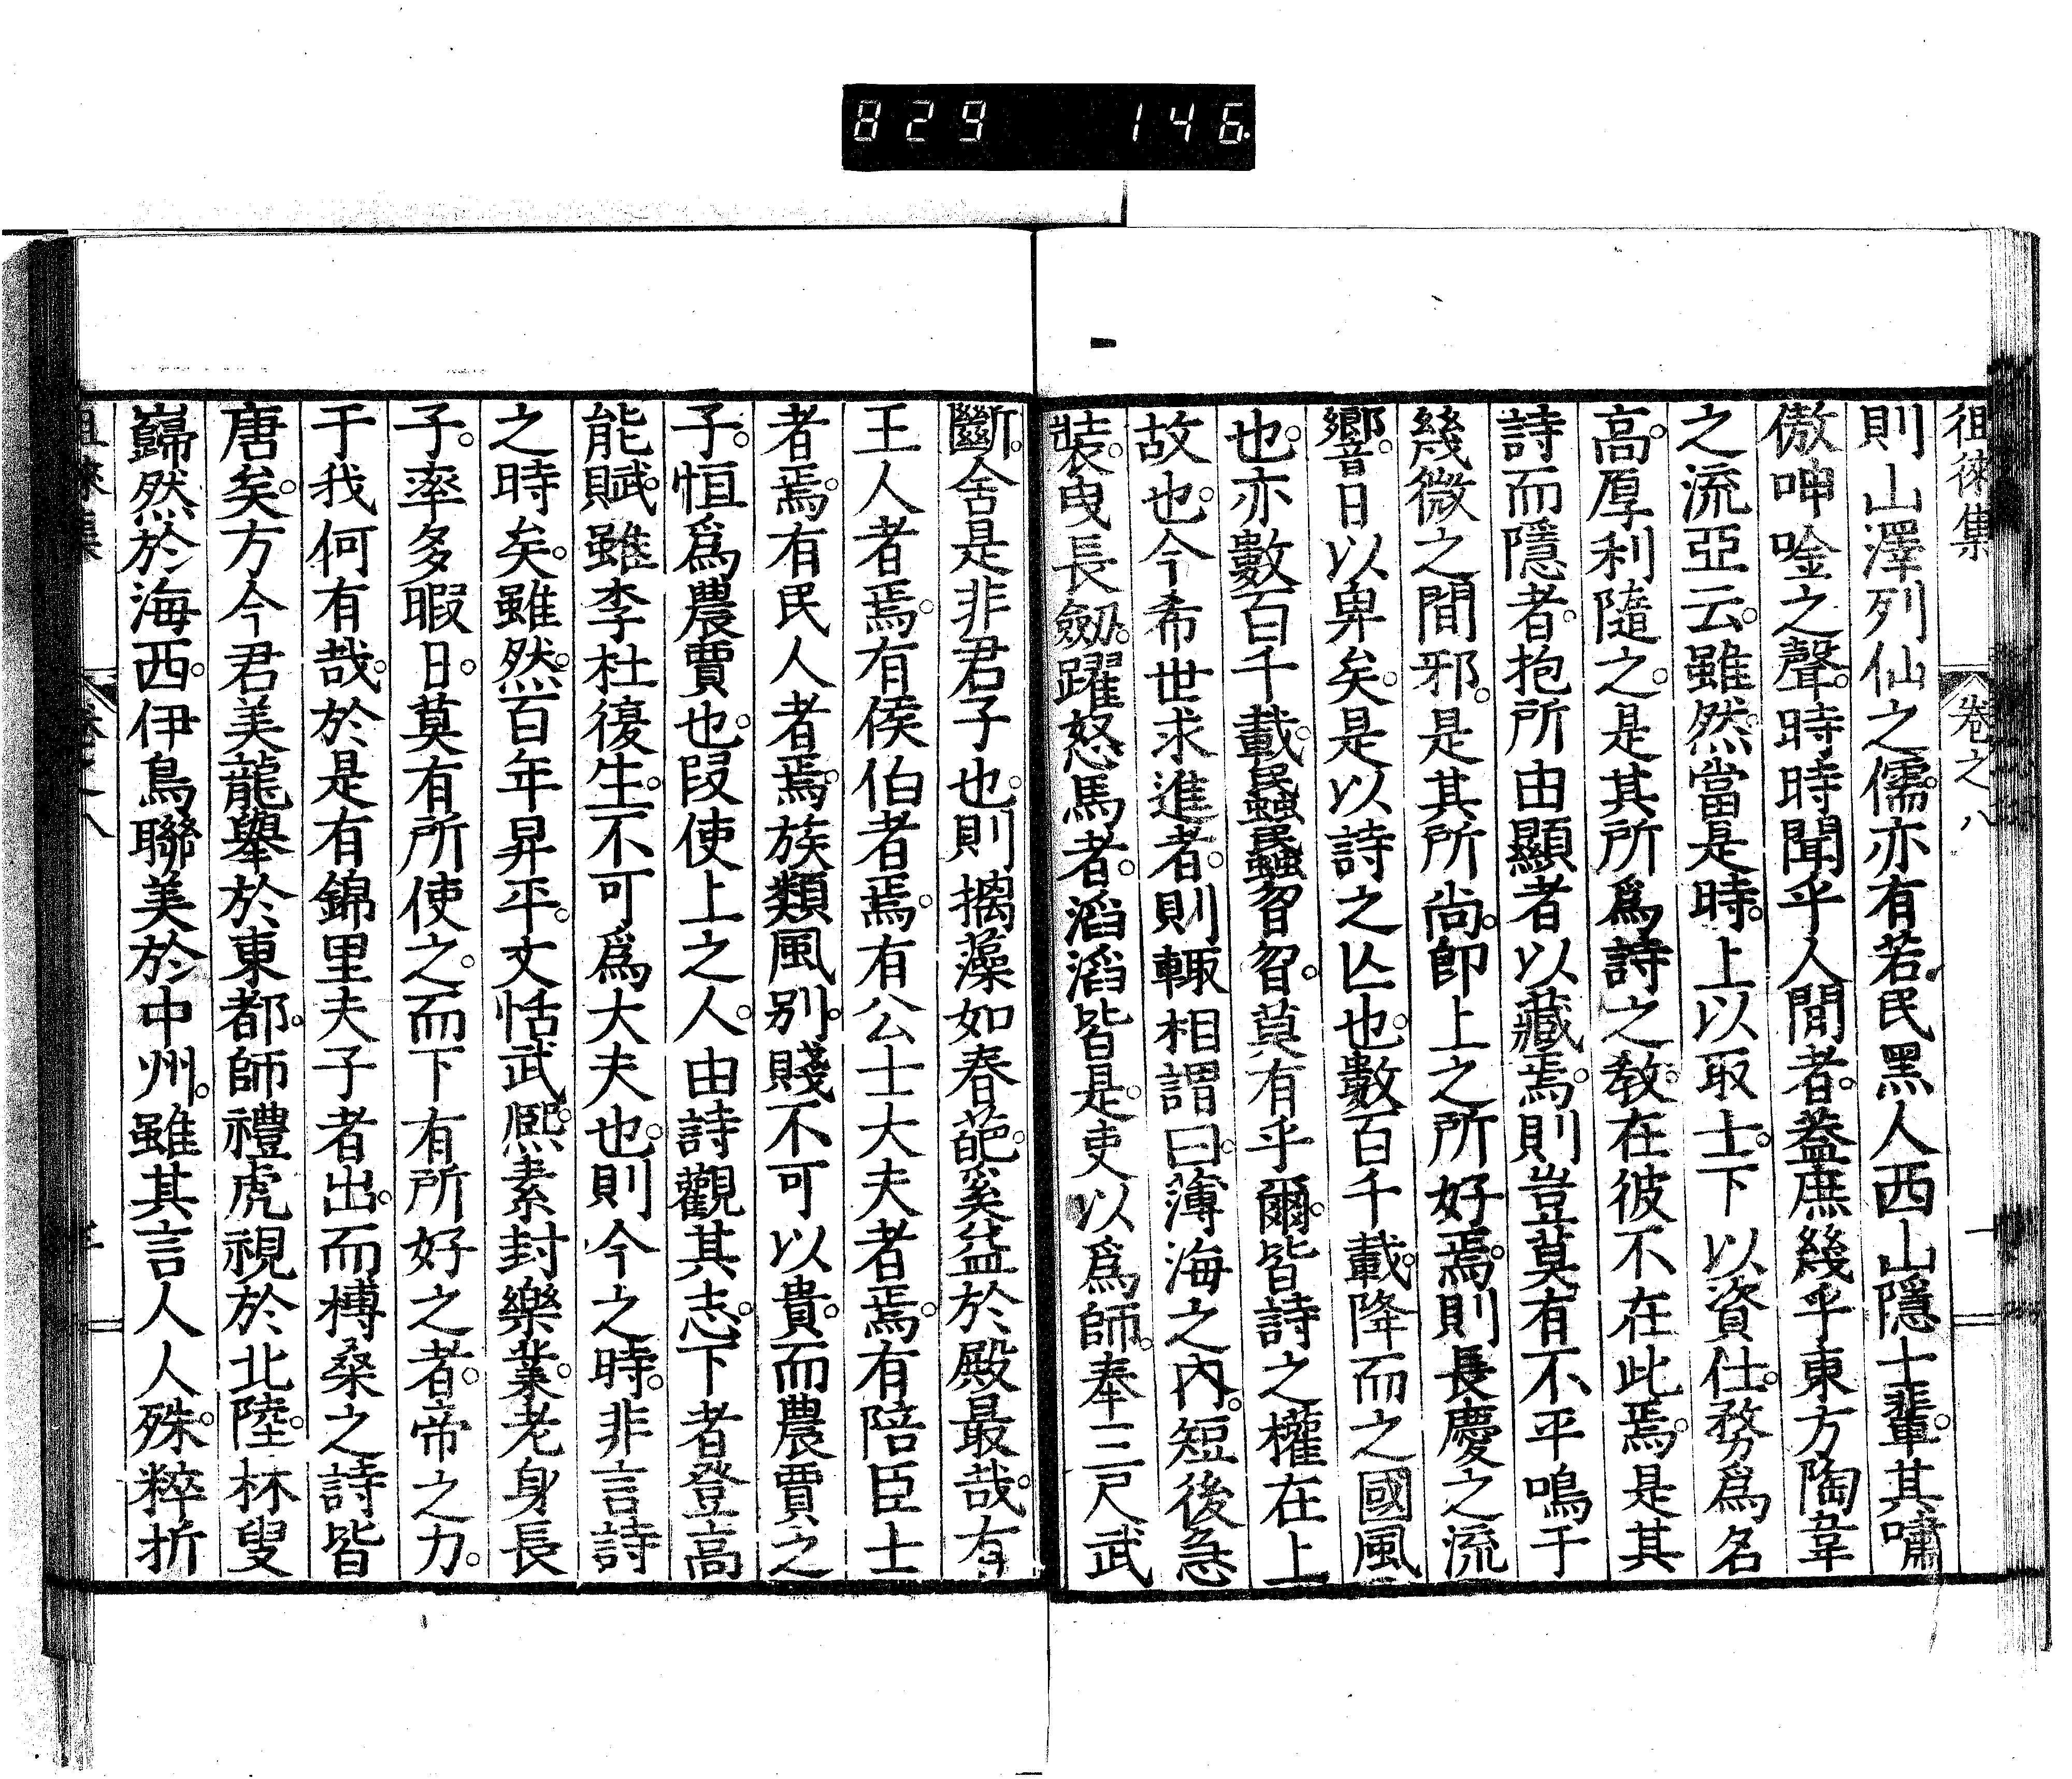 829 146
徂徠集 卷之八
則山澤列仙之儒。亦有若民黑人西山隱士輩。其嘯
傲呻唫之聲。時時聞乎人間者。蓋庶幾乎東方陶韋
之流亞云。雖然。當是時。上以取士。下以資仕。務爲名
高。厚利隨之。是其所爲詩之教。在彼不在此焉。是其
詩而隱者。抱所由顯者以藏焉。則豈莫有不平鳴于
幾微之間邪。是其所尚。卽上之所好焉。則長慶之流
響。日以卑矣。是以詩之亾也。數百千載。降而之國風
也。亦數百千載。蟁蟁曶曶。莫有乎爾。皆詩之權在上
故也。今希世求進者。則輙相謂曰。薄海之內。短後急
裝。曳長劔。躍怒馬者。滔滔皆是。吏以爲師。奉三尺武
斷。舍是非君子也。則摛藻如春葩。奚益於殿最哉。有
王人者焉。有侯伯者焉。有公士大夫者焉。有陪臣士
者焉。有民人者焉。族類風別。賤不可以貴。而農賈之
子。恒爲農賈也。叚使上之人。由詩觀其志。下者登高
能賦。雖李杜復生。不可爲大夫也。則今之時。非言詩
之時矣。雖然。百年昇平。文恬武熙。素封樂業。老身長
子。率多暇日。莫有所使之。而下有所好之者。帝之力。
于我何有哉。於是有錦里夫子者出。而榑桑之詩皆
唐矣。方今君美龍舉於東都。師禮虎視於北陸。林叟
巋然於海西。伊鳥聯美於中州。雖其言人人殊。粹折